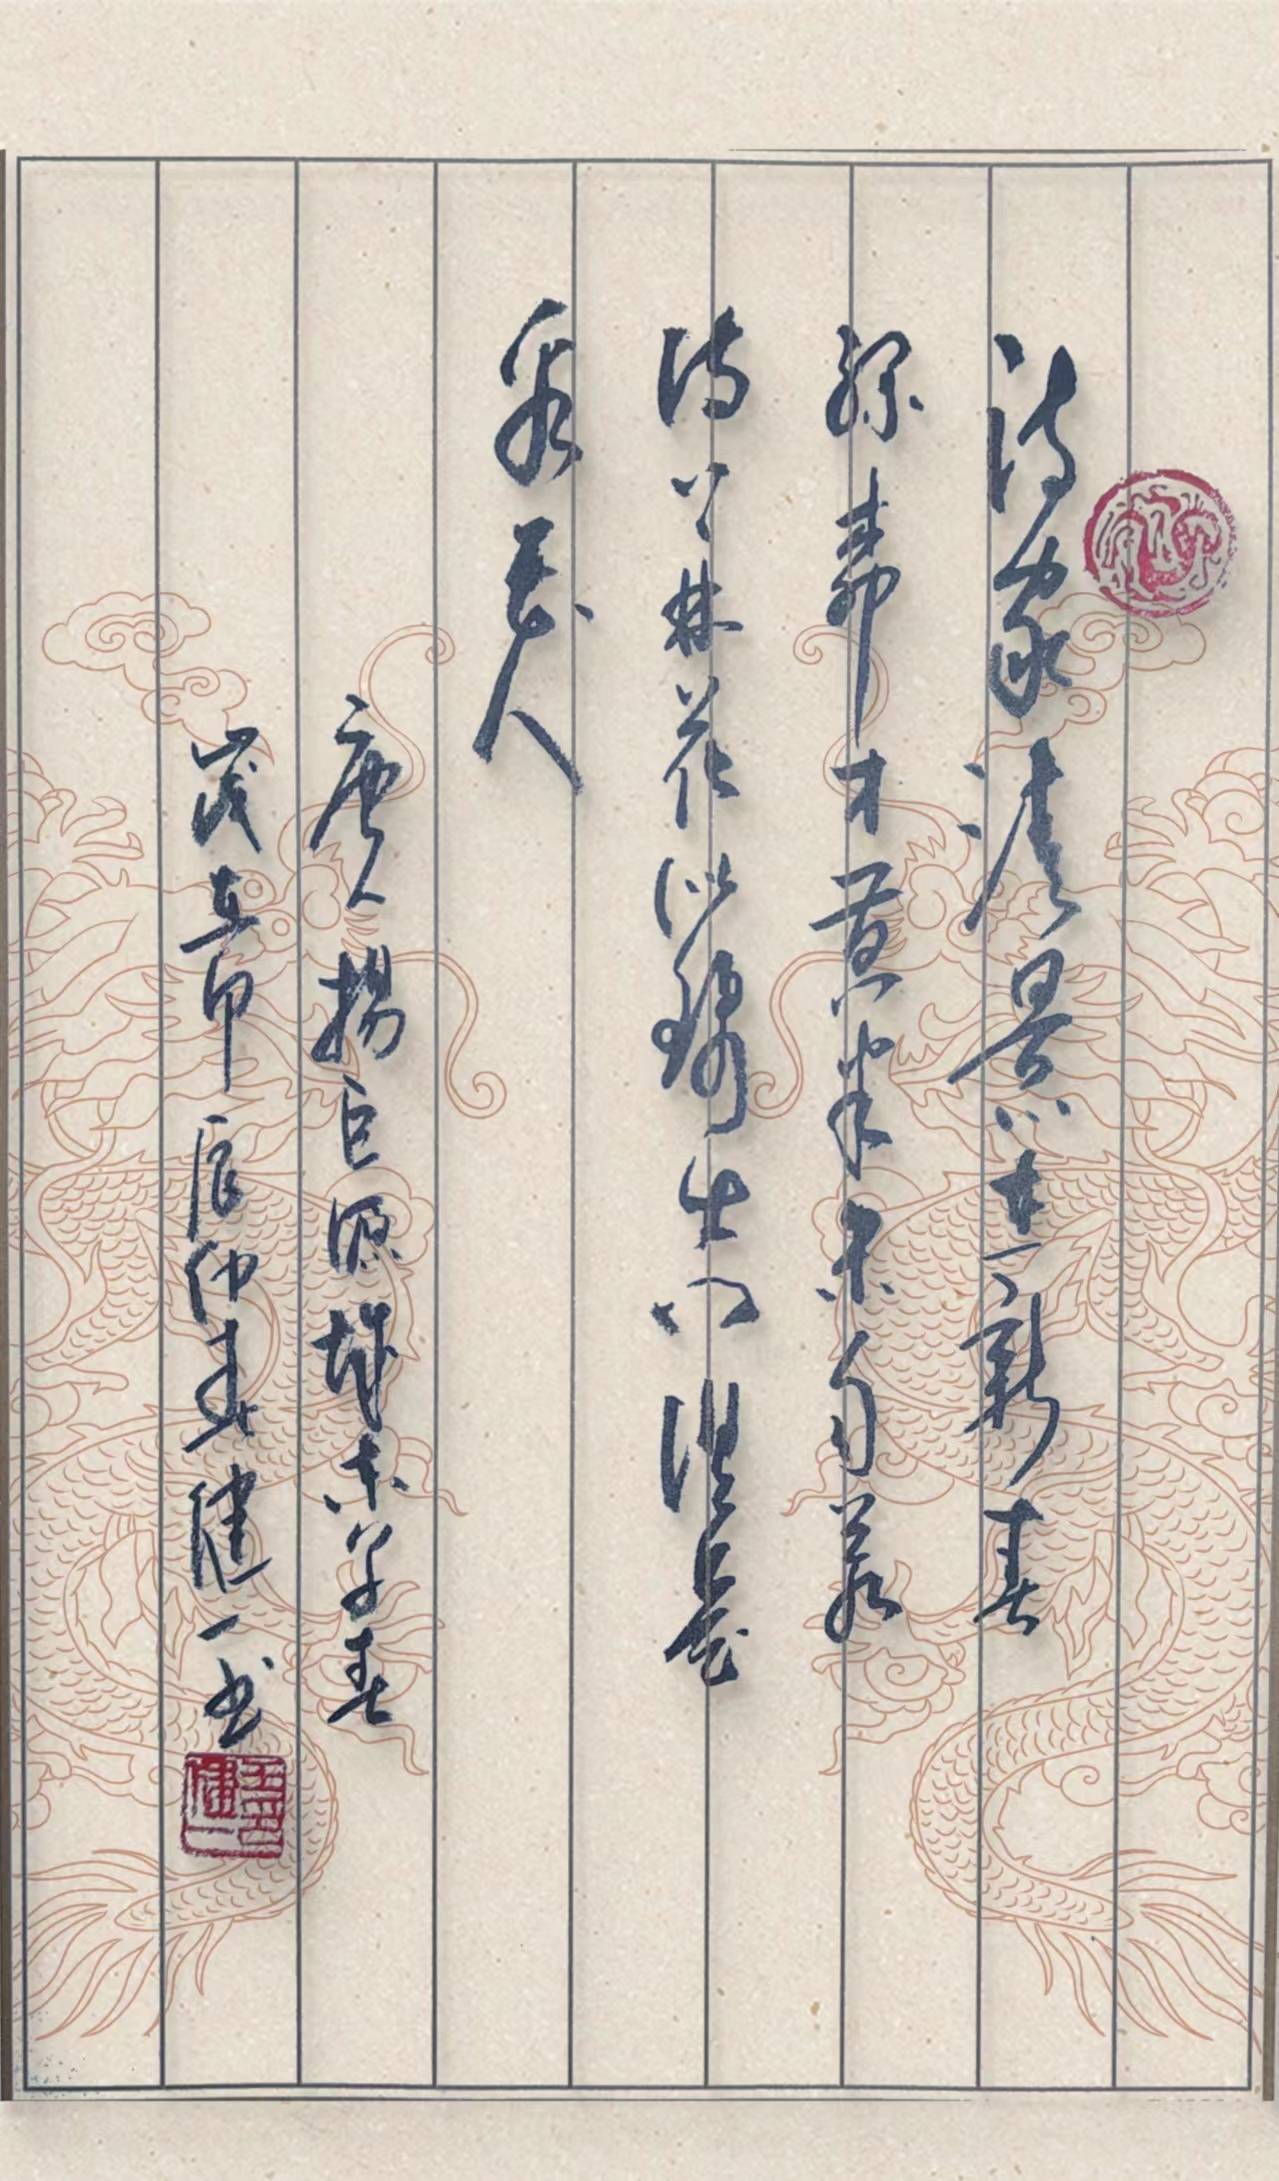 诗家清景在新春
绿柳才黄半未匀若
待上林花似锦出门俱是
看花人
唐人杨巨源城东早春
岁在甲辰仲春健一书